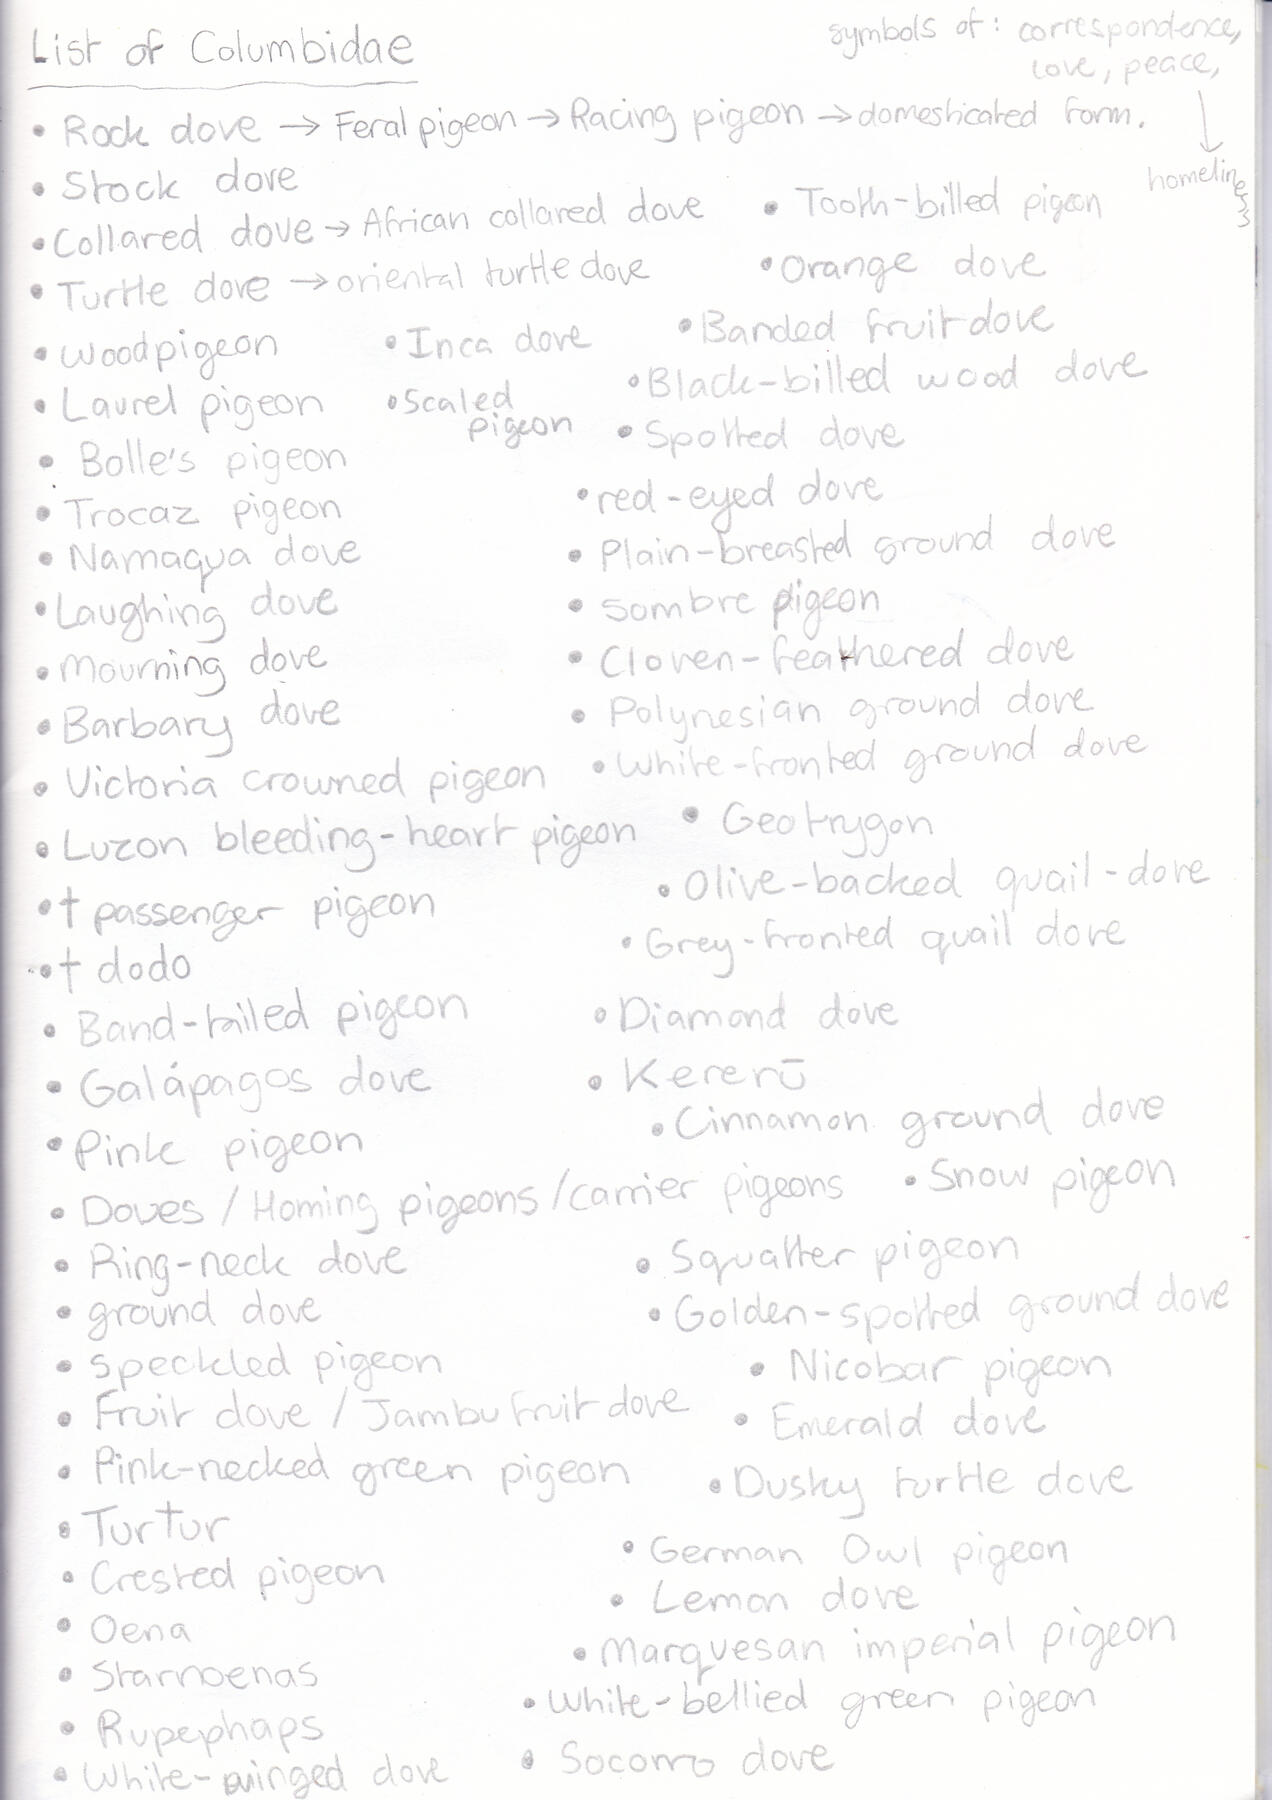 List of Columbidae
symbols of: correspondence,
love, peace,
↓
homeliness
• Rock dove → Feral pigeon → Racing pigeon → domesticated form.
• Stock dove
• Collared dove → African collared dove
• Turtle dove → oriental turtle dove
• Woodpigeon
• Laurel pigeon
• Bolle's pigeon
• Trocaz pigeon
• Namaqua dove
• Laughing dove
• Mourning dove
• Barbary dove
• Victoria crowned pigeon
• Luzon bleeding-heart pigeon
• † passenger pigeon
• † dodo
• Band-tailed pigeon
• Galápagos dove
• Pink pigeon
• Doves / Homing pigeons / carrier pigeons
• Ring-neck dove
• ground dove
• speckled pigeon
• Fruit dove / Jambu fruit dove
• Pink-necked green pigeon
• Turtur
• Crested pigeon
• Oena
• Starnoenas
• Rupephaps
• White-winged dove
• Inca dove
• Scaled
pigeon
• Tooth-billed pigeon
• Orange dove
• Banded fruit dove
• Black-billed wood dove
• Spotted dove
• red-eyed dove
• Plain-breasted ground dove
• Sombre pigeon
• Cloven-feathered dove
• Polynesian ground dove
• White-fronted ground dove
• Geotrygon
• Olive-backed quail-dove
• Grey-fronted quail dove
• Diamond dove
• Kererū
• Cinnamon ground dove
• Snow pigeon
• Squatter pigeon
• Golden-spotted ground dove
• Nicobar pigeon
• Emerald dove
• Dusky turtle dove
• German Owl pigeon
• Lemon dove
• Marquesan imperial pigeon
• White-bellied green pigeon
• Socorro dove